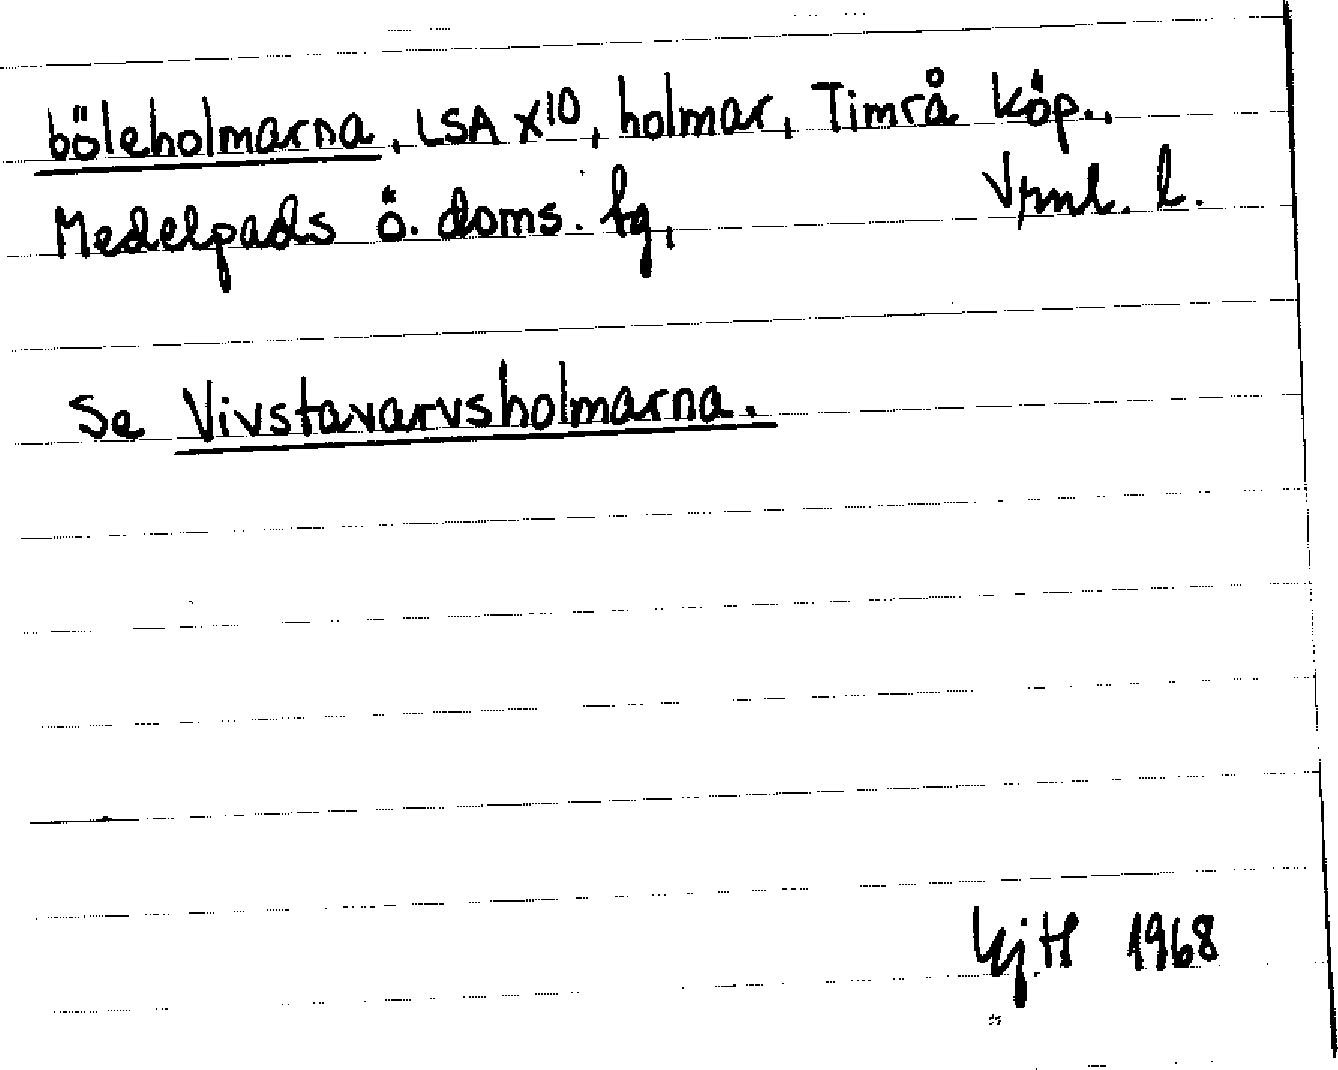 böleholmarna, LSA X10, holmar, Timrå köp.,
Medelpads ö. doms. tg, Vrnl. l.
Se Vivstavarvsholmarna.
1968